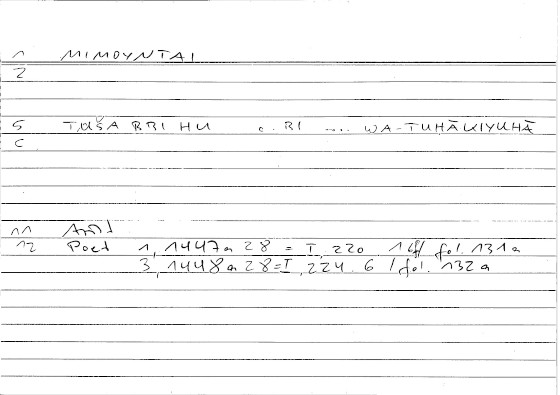 1 MIMOYNTAI
2
5 TUŠABBIHU c. BI .... WA-TUHĀKIYUHĀ
C
11 Arist
12 Poet 1, 1447a 28 = I, 220 16f/ fol. 131a
3, 1448a 28 = I, 224. 6 / fol. 132a